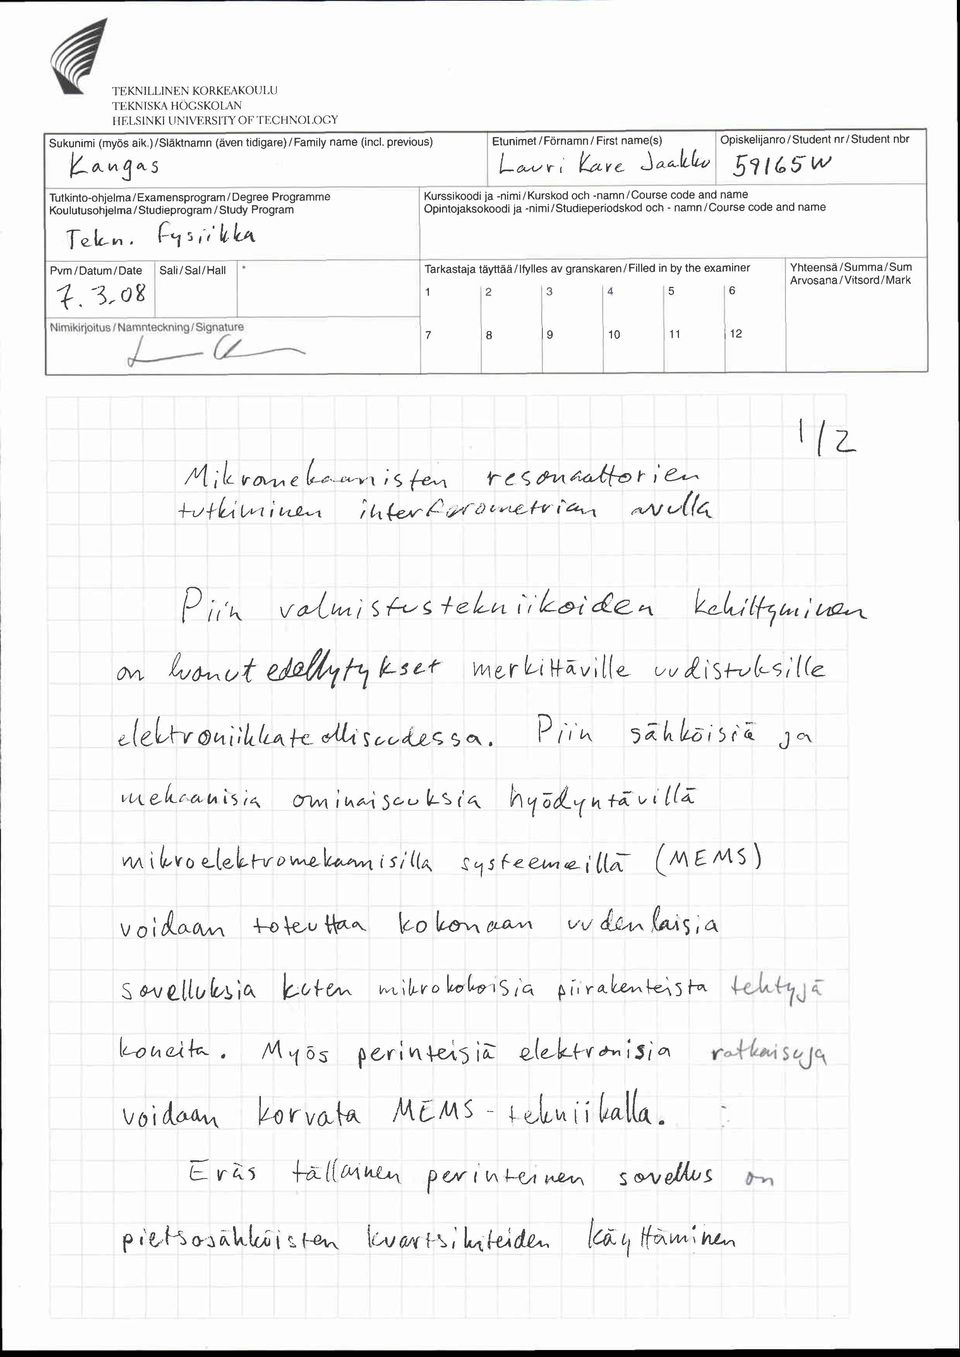 TEKNILLINEN KORKEAKOULU
TEKNISKA HÖGSKOLAN
HELSINKI UNIVERSITY OF TECHNOLOGY
Sukunimi (myös aik.)/Släktnamn (även tidigare)/Family name (incl. previous)
Kangas
Etunimet/Förnamn/First name(s)
Lauri Kare Jaakko
Opiskelijanro/Student nr/Student nbr
59165W
Tutkinto-ohjelma/Examensprogram/Degree Programme
Koulutusohjelma/Studieprogram/Study Program
Tekn. fysiikka
Kurssikoodi ja -nimi/Kurskod och -namn/Course code and name
Opintojaksokoodi ja -nimi/Studieperiodskod och - namn/Course code and name
Pvm/Datum/Date
7.3.08
Sali/Sal/Hall
Tarkastaja täyttää/Ifylles av granskaren/Filled in by the examiner
1 2 3 4 5 6
7 8 9 10 11 12
Yhteensä/Summa/Sum
Arvosana/Vitsord/Mark
Nimikirjoitus/Namnteckning/Signature
1/2
Mikromekaanisten resonaattorien
tutkiminen interferometrian avulla
Piin valmistustekniikoiden kehittyminen
on luonut edellytykset merkittäville uudistuksille
elektroniikkateollisuudessa. Piin sähköisiä ja
mekaanisia ominaisuuksia hyödyntävillä
mikroelektromekaanisilla systeemeillä (MEMS)
voidaan toteuttaa kokonaan uudenlaisia
sovelluksia kuten mikrokokoisia piirakenteista tehtyjä
koneita. Myös perinteisiä elektronisia ratkaisuja
voidaan korvata MEMS-tekniikalla.
Eräs tällainen perinteinen sovellus on
pietsosähköisten kvartsikiteiden käyttäminen